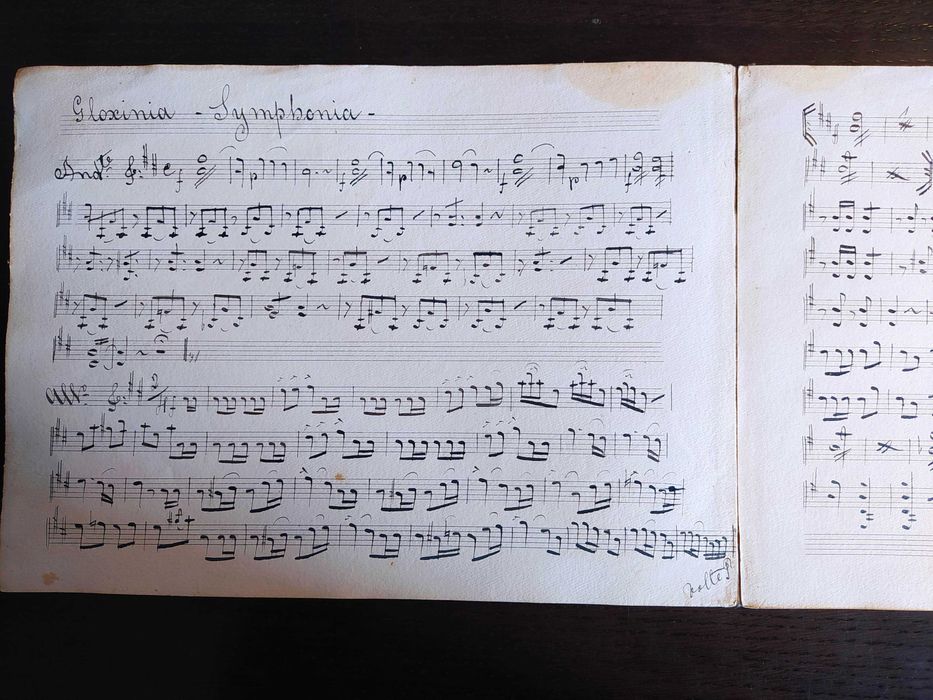 Gloxinia - Symphonia -
And.te
f p f p f p f
All.º
ff
volte